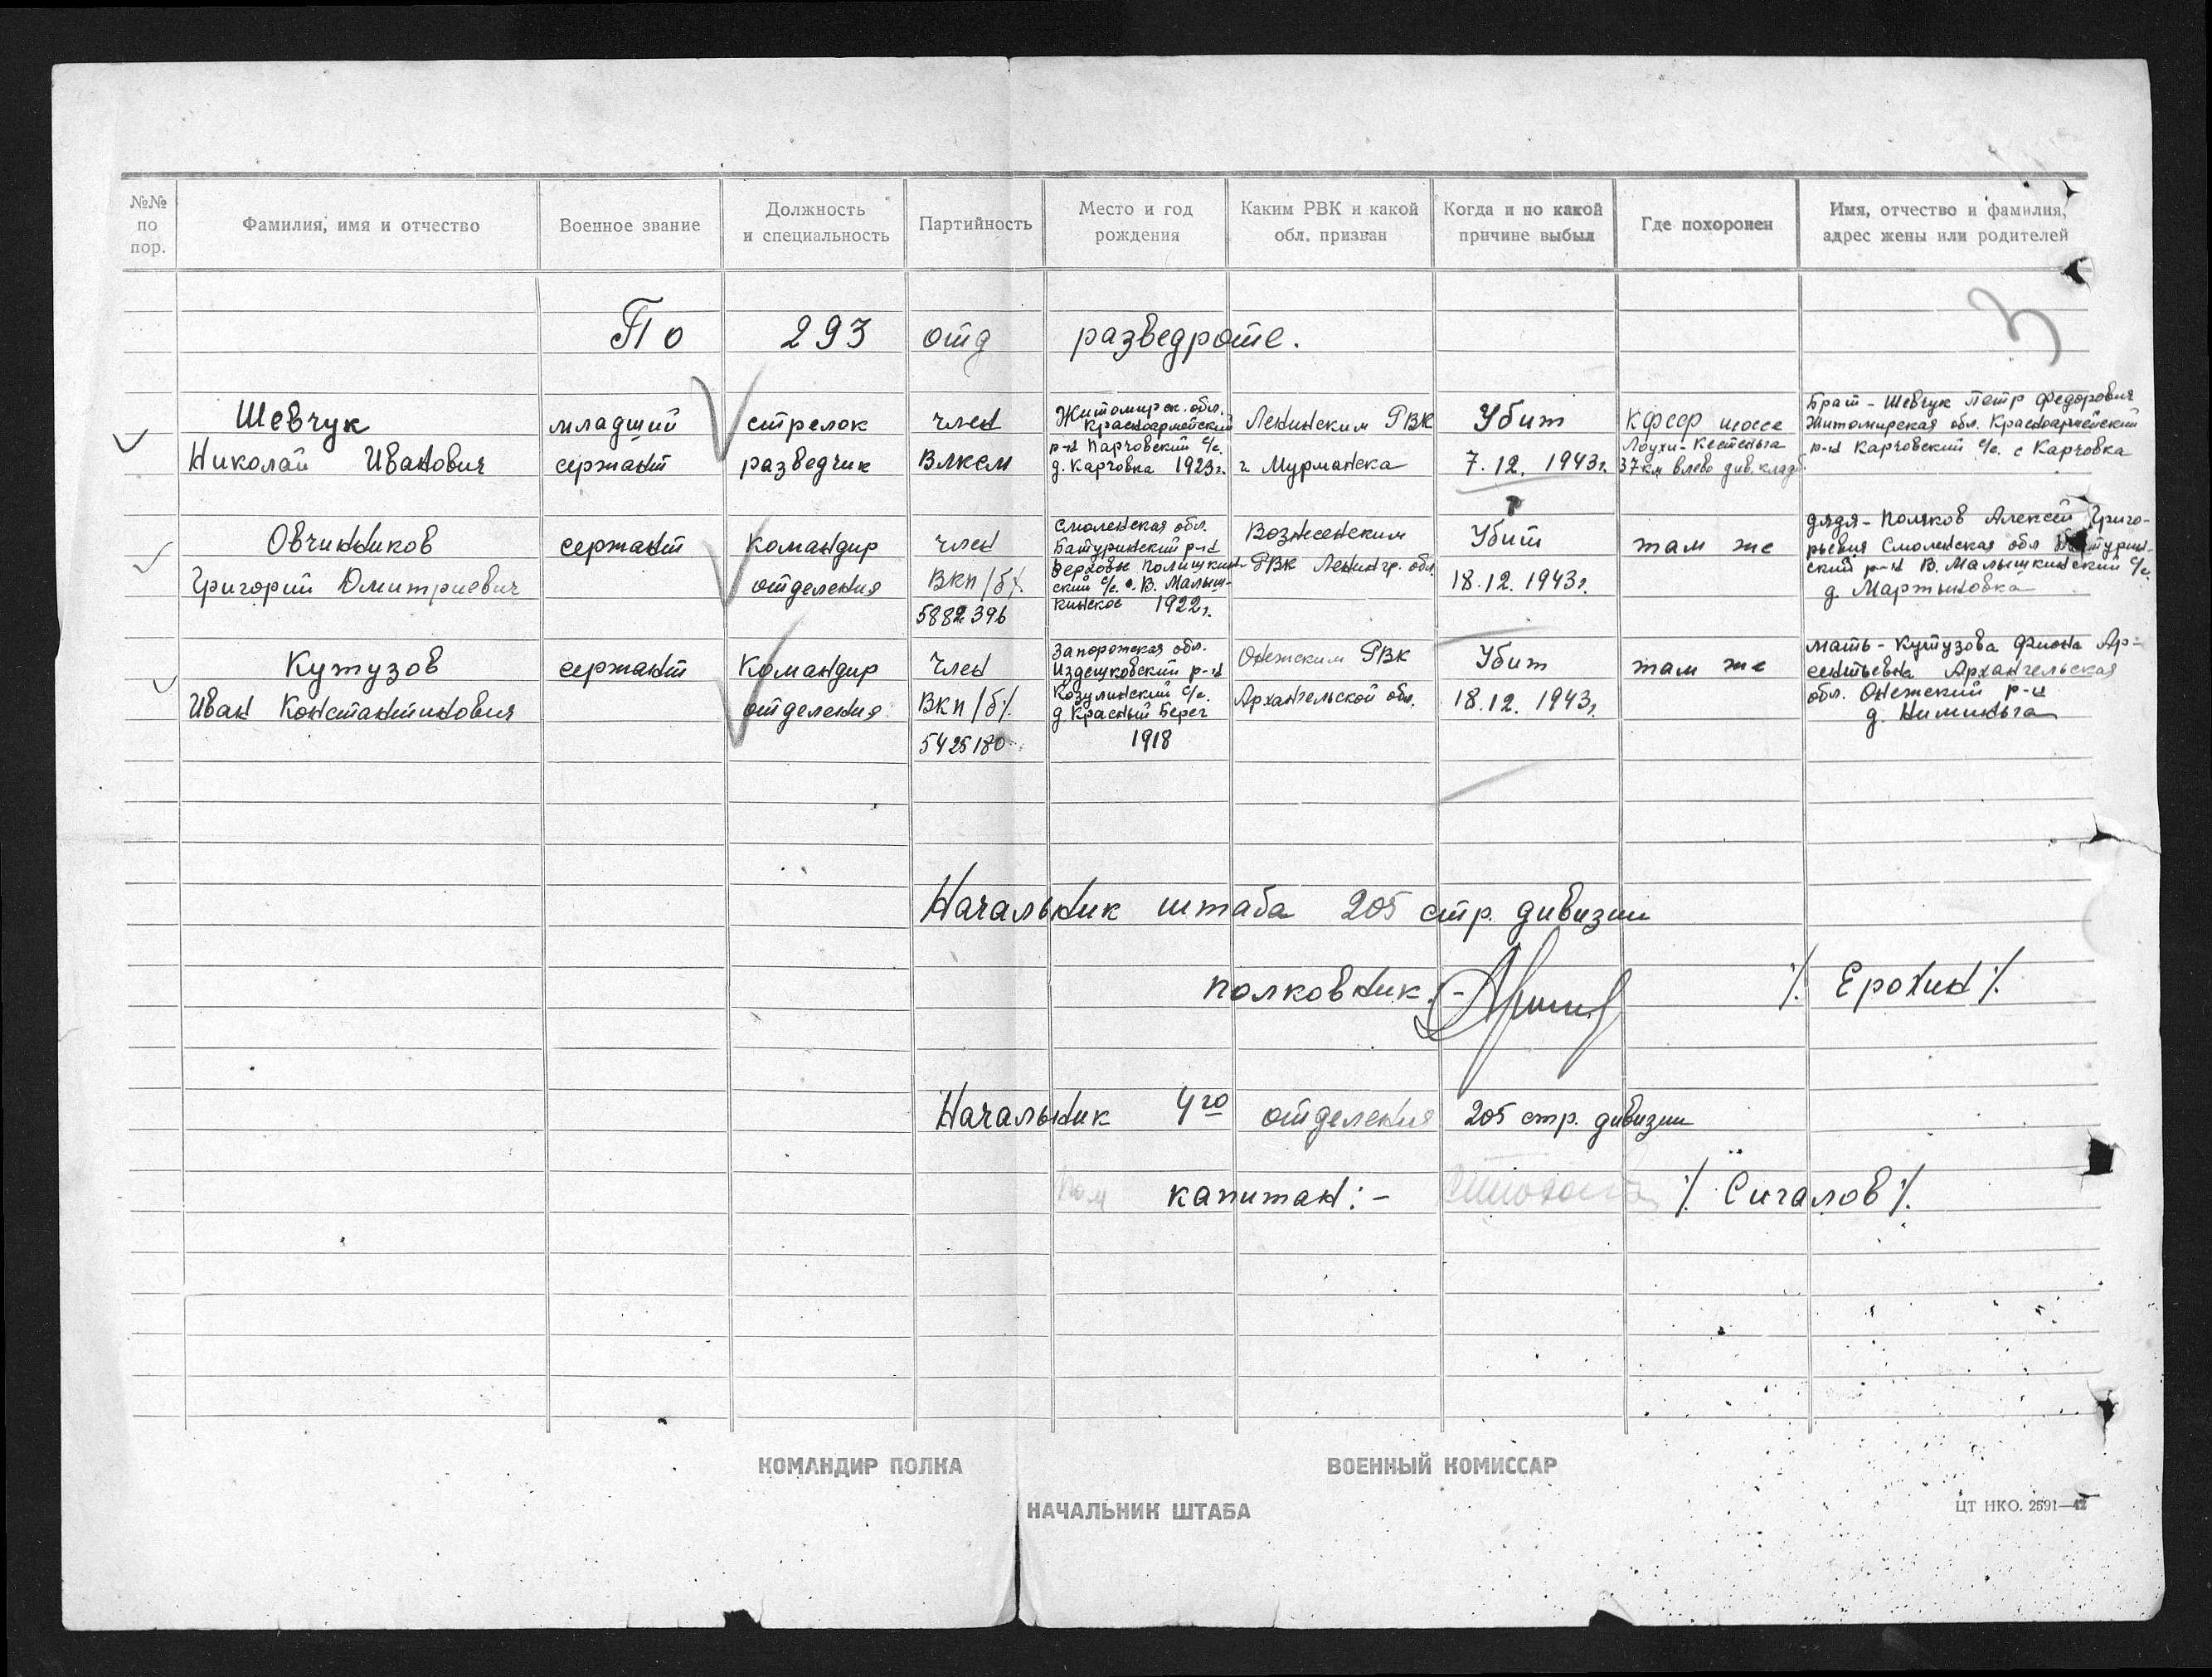 №№ по пор.
Фамилия, имя и отчество
Военное звание
Должность и специальность
Партийность
Место и год рождения
Каким РВК и какой обл. призван
Когда и по какой причине выбыл
Где похоронен
Имя, отчество и фамилия, адрес жены или родителей
3
По 293 отд разведроте.
Шевчук
Николай Иванович
младший
сержант
стрелок
разведчик
член
ВЛКСМ
Житомирск. обл.
Красноармейский
р-н Парчовский с/с.
д. Карчовка 1923г.
Ленинским РВК
г. Мурманска
Убит
7.12. 1943г.
КФССР шоссе
Лоухи-Кестеньга
37км влево див. кладб.
Брат - Шевчук Петр Федорович
Житомирская обл. Красноармейский
р-н Карчовский с/с. с Карчовка
Овчинников
Григорий Дмитриевич
сержант
Командир
отделения
член
ВКП/б/.
5882396
Смоленская обл.
Батуринский р-н
Верховье Полишкин-
ский с/с. В. Малыш-
кинское 1922г.
Вознесенским
РВК Ленингр. обл.
Убит
18.12. 1943г.
там же
дядя - Поляков Алексей Григо-
рьевич Смоленская обл Батурин-
ский р-н В. Малышкинский с/с.
д. Мартыновка
Кутузов
Иван Константинович
сержант
Командир
отделения
Член
ВКП/б/.
5425180
Запорожская обл.
Издешковский р-н
Козулинский с/с.
д Красный Берег
1918
Онежским РВК
Архангельской обл.
Убит
18.12. 1943г.
там же
мать - Кутузова Фиона Ар-
сентьевна Архангельская
обл. Онежский р-н
д. Нименьга
Начальник штаба 205 стр. дивизии
полковник. - /. Ерохин /.
Начальник 4го отделения 205 стр. дивизии
Пом капитан: - /. Сигалов /.
КОМАНДИР ПОЛКА
ВОЕННЫЙ КОМИССАР
НАЧАЛЬНИК ШТАБА
ЦТ НКО. 2591—42